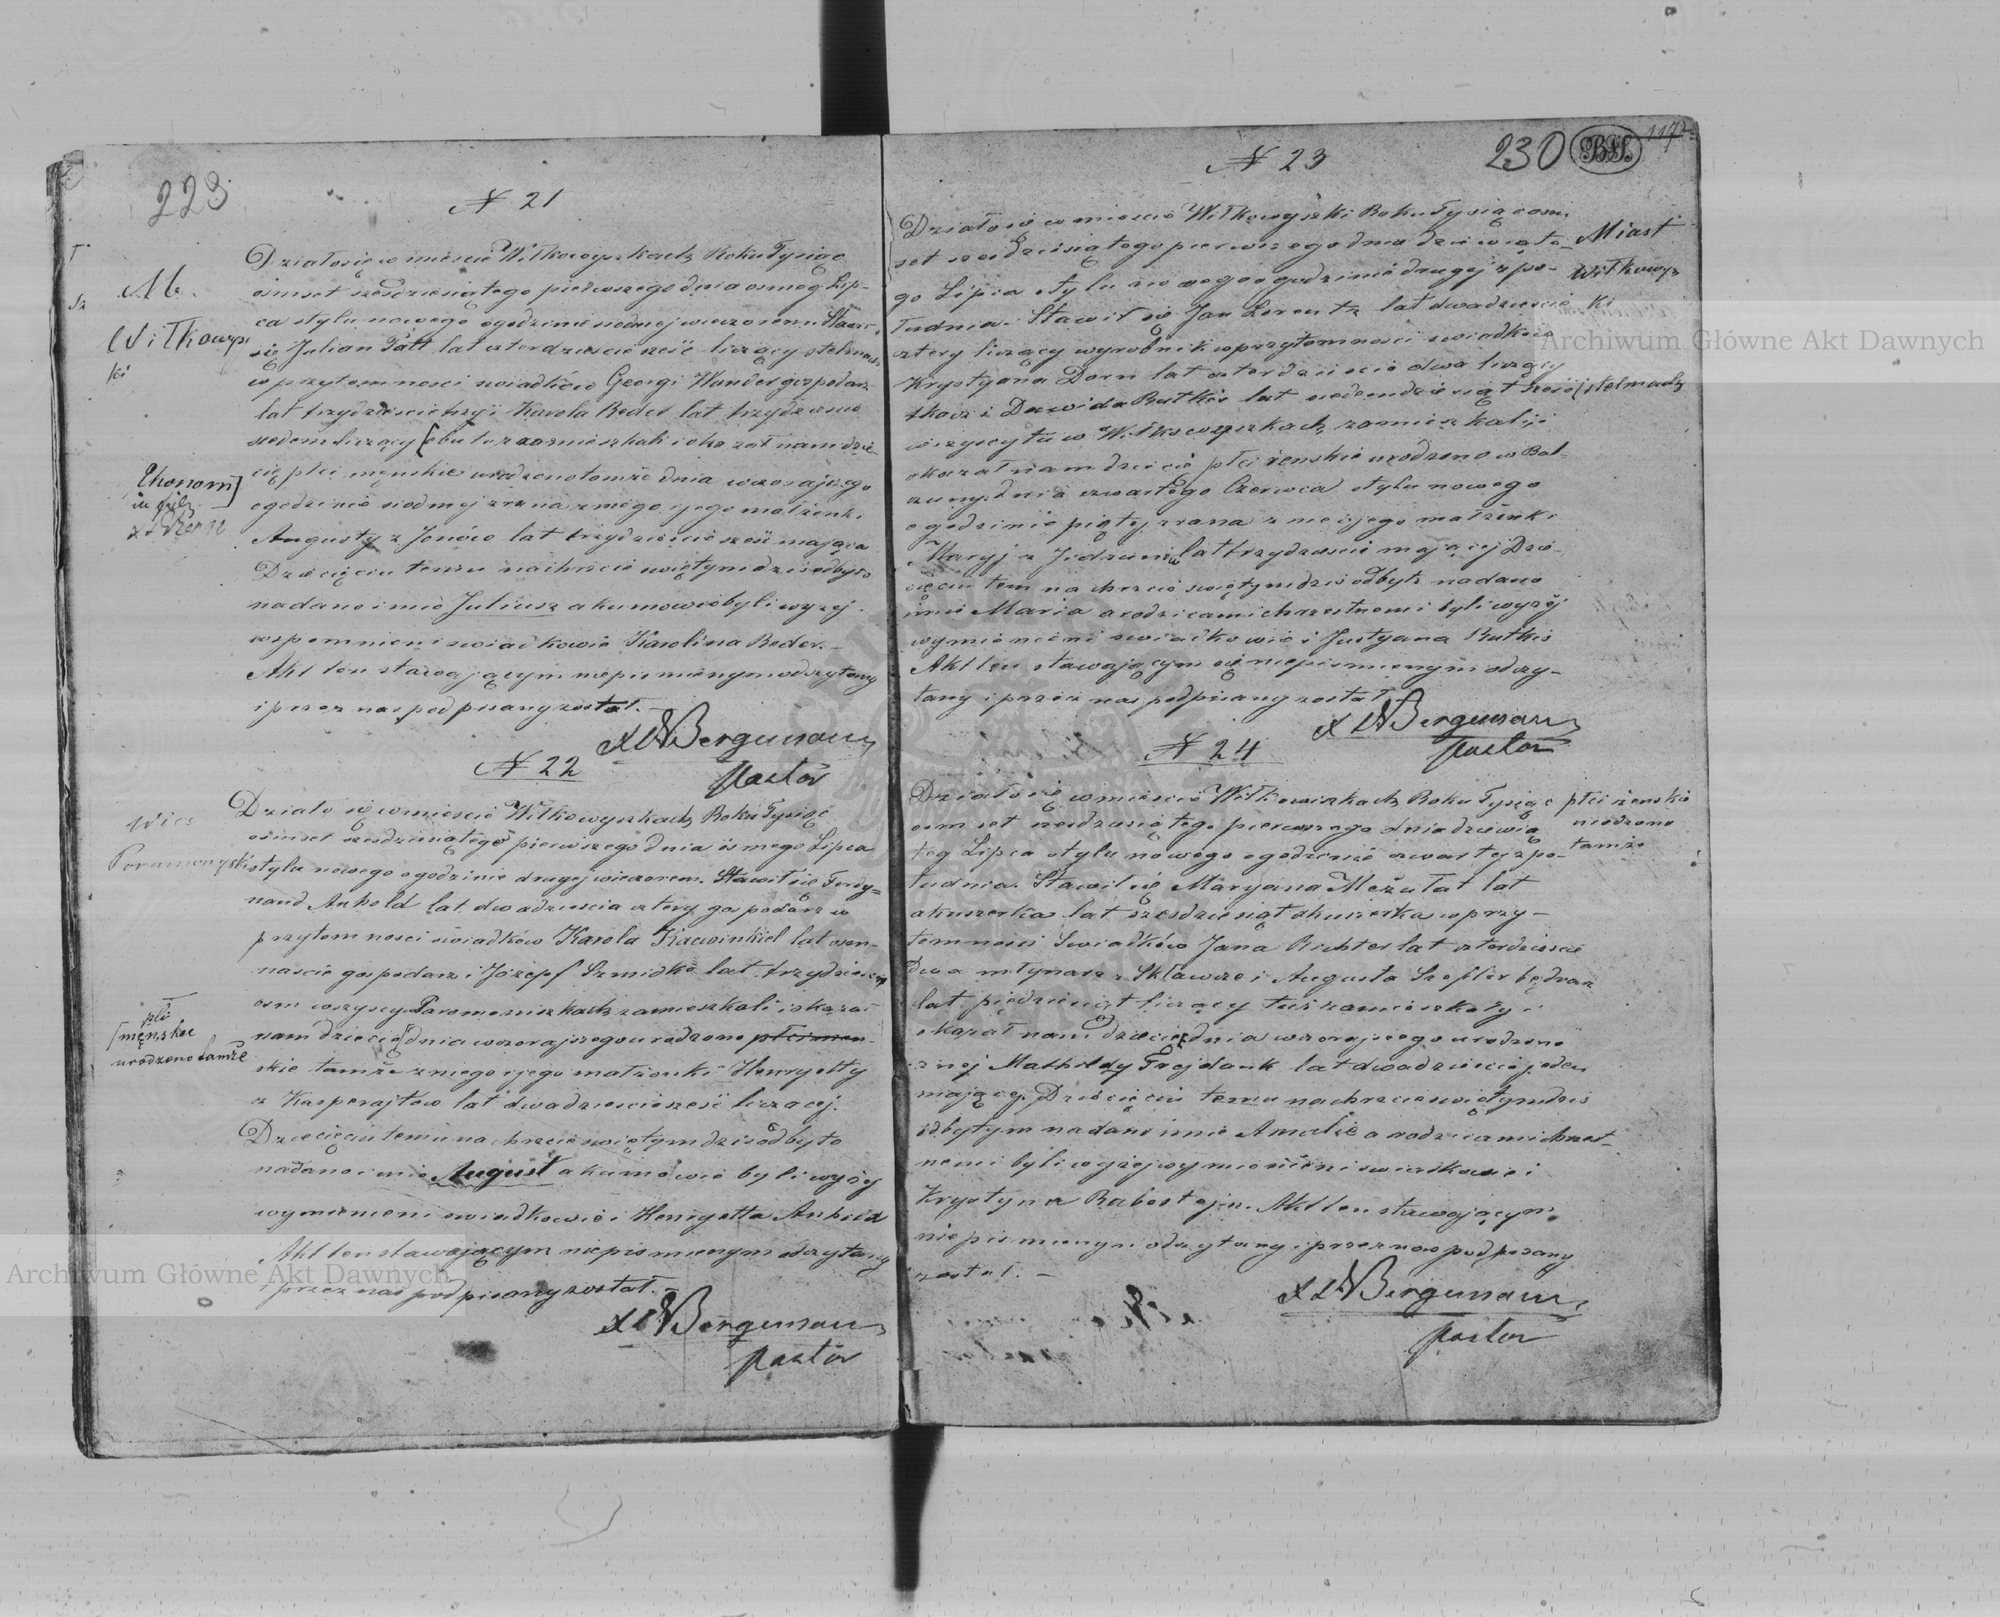 223
N 21
M.
Wilkowysz
ki
Działo się w mieście Wilkowyszkach Roku Tysiąc
ośmset sześćdziesiątego pierwszego dnia osmego Lip-
ca stylu nowego o godzinie siódmej wieczorem. Stawił
się Julian Patt lat czterdzieście sześć liczący stelmach
w przytomności świadków Georgi Wander gospodarz
lat trzydzieście trzy i Karola Reder lat trzydzieście
siedem liczący [obu tu zamieszkali i okazał nam dzie-
cię płci męskiej urodzone tomże dnia wczorajszego
Ekonom]
o godzinie siodmej zrana z niego i jego małżonki
Augusty z Jonów lat trzydzieście sześć mająca
Dziecięciu temu na chrzcie świętym dziś odbyto
nadano imie Juliusz a kumowie byli wyżej
wspomnieni świadkowie Karolina Reder.-
Akt ten stawającym niepismienym odczytany
i przez nas podpisany został.-
Bergmann
Pastor
N 22
Wies
Działo się w mieście Wilkowyszkach Roku Tysiąc
ośmset sześdziesiątego pierwszego dnia ósmego Lipca
stylu nowego o godzinie drugiej wieczorem. Stawił się Ferdy=
nand Anhold lat dwadzieścia cztery gospodarz w
przytomności świadków Karola Kaewinkiel lat osm-
naście gospodarz i Józef Szmidke lat trzydzieście
osm wszyscy Paromoniszkach zamieszkali i okazał
płci
[męskiе
urodzono tamże
nam dziecię [dnia wczorajszego urodzone płci men-
skie tamże z niego i jego małżonki Henryetty
z Kasperajtów lat dwadzieście sześć liczącej.
Dziecięciu temu na chrzcie świętym dziś odbyto
nadano imie August a kumowie byli wyżej
wymienieni świadkowie i Henryetta Anhold
Akt ten stawającym niepismienym odczytany
i przez nas podpisany został.-
Bergmann
Pastor
230
B.H.
N 23
Działo się w mieście Wilkowyszki Roku Tysiąc osm-
set sześdziesiątego pierwszego dnia dziewiąte-
Miast
go Lipca stylu nowego o godzinie drugej z po-
Wilkowysz
łudnia. Stawił się Jan Lorentz lat dwadzieście
ki
cztery liczący wyrobnik w przytomności świadków
Krystyana Dorn lat czterdzieście dwa liczący
tkacz i Dawida Rutkis lat siedemdziesiąt sześć [stelmach
wszyscy tu w Wilkowyszkach zamieszkali i
okazał nam dziecię płci żenskie urodzone w Bal-
dnia czwartego Czerwca stylu nowego
o godzinie piątej zrana z niej i jego małżonki
Maryj z lat trzydzieście mającej Dzie-
cięciu tem na chrzcie świętym dziś odbyto nadano
imie Maria a rodzicami chrzestnemi byli wyżej
wymienieni świadkowie i Justyana Rutkis
Akt ten stawającym się niepismienym odczy-
tany i przez nas podpisany został
Bergmann
Pastor
N 24
Działo się w mieście Wilkowiszkach Roku Tysiąc
płci żenskie
osmset sześdziesiątego pierwszego dnia dziewią
urodzono
teg Lipca stylu nowego o godzinie czwartej z po-
tamże
łudnia. Stawił się Maryana Mežułat lat
akuszerka lat sześdziesiąt akuszerka w przy-
tomności Swiadków Jana Richter lat czterdzieście
dwa młynarz i Augusta Szefler bednarz
lat pięćdziesiąt liczący tu zamieszkały i
okazał nam dziecię [dnia wczorajszego urodzone
z niej Mathildy Frejdank lat dwadzieście jeden
mającej Dziecięciu temu na chrzcie świętym dziś
odbytym nadano imie Amalie a rodzicami chrzest-
nemi byli wyżej wymienieni świadkowie i
Krystyna Rabostejn. Akt ten stawającym
niepismienym odczytany i przez nas podpisany
został.-
Bergmann
Pastor
Archiwum Główne Akt Dawnych
Archiwum Główne Akt Dawnych